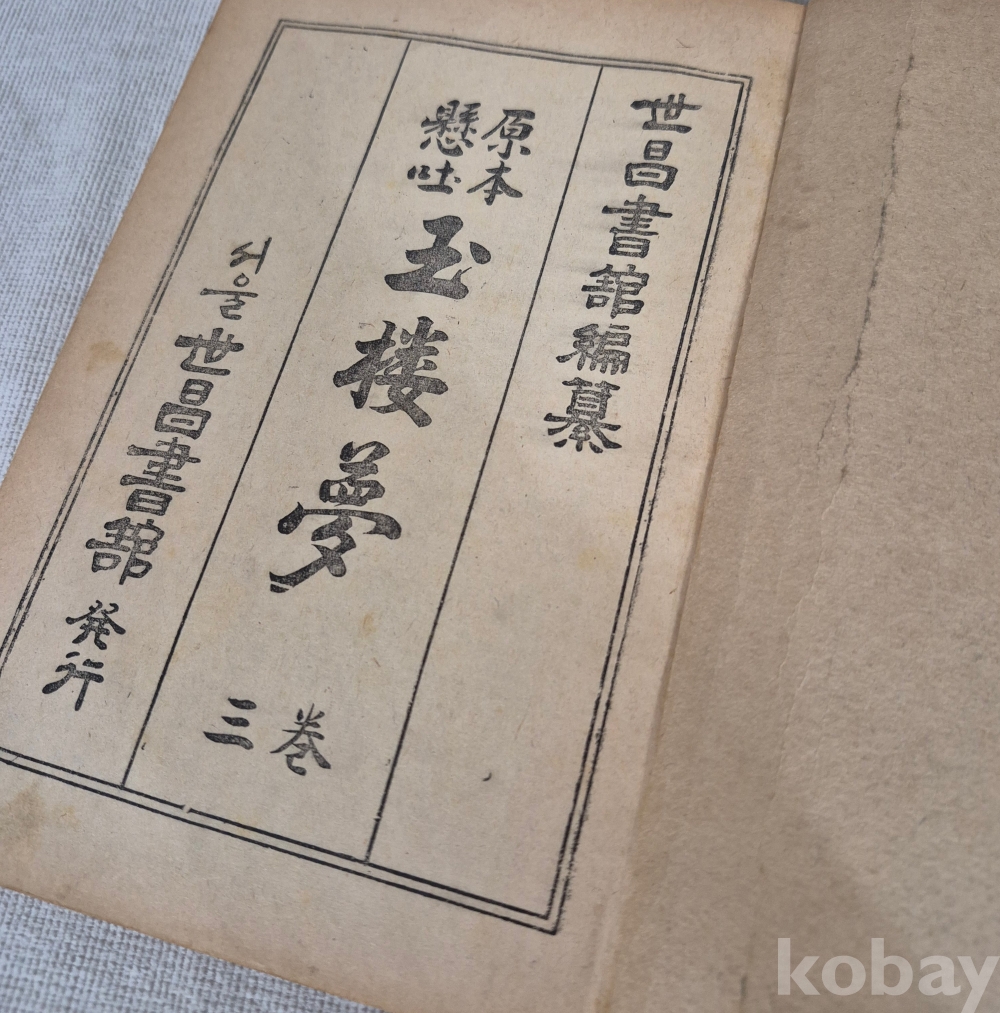 世昌書館編纂
原本
懸吐
玉楼夢
卷三
서울 世昌書館 発行
kobay